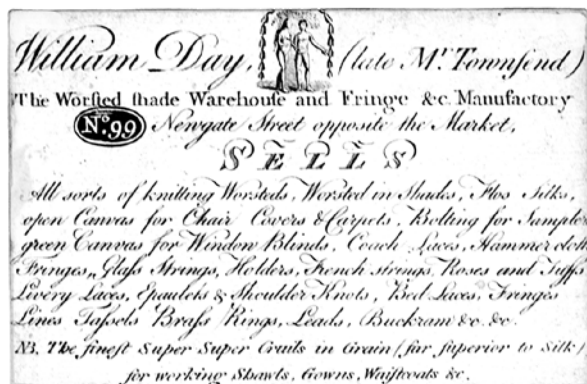 William Day, (late Mr. Townsend)
The Worsted shade Warehouse and Fringe &c. Manufactory
No. 99 Newgate Street opposite the Market,
SELLS
All sorts of knitting Worsteds, Worsted in Shades, Flos Silks,
open Canvas for Chair Covers & Carpets, Bolting for Samplers
green Canvas for Window Blinds, Coach Laces, Hammer cloth
Fringes, Glass Strings, Holders, French strings, Roses and Tuffs
Livery Laces, Epaulets & Shoulder Knots, Bed Laces, Fringes
Lines Tassels Brass Rings, Leads, Buckram &c. &c.
NB. The finest Super Super Cruils in Grain (far superior to Silk)
for working Shawls, Gowns, Waistcoats &c.